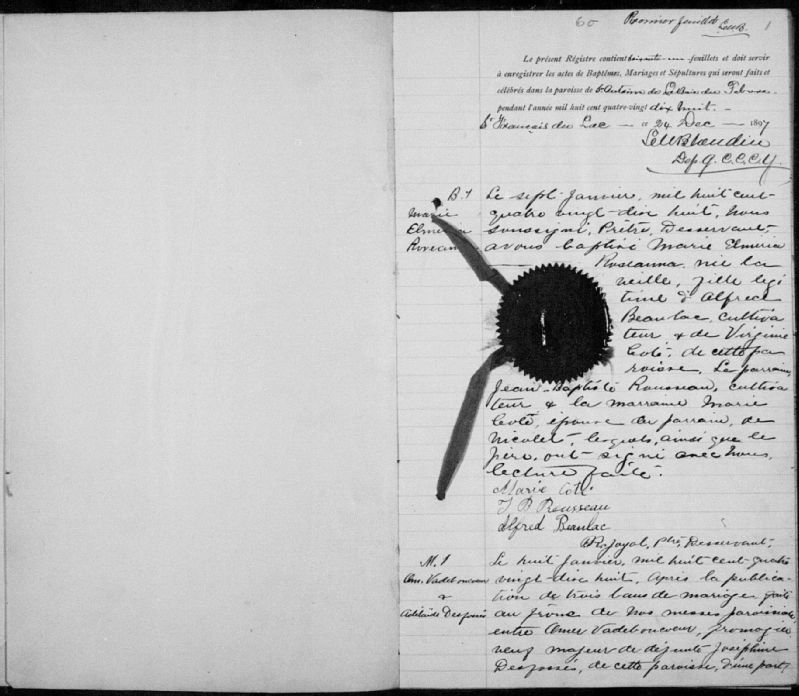 60 Premier feuillet 1
Le présent Régistre contient soixante-un feuillets et doit servir
à enregistrer les actes de Baptêmes, Mariages et Sépultures qui seront faits et
célébrés dans la paroisse de St Antoine de la Baie du Febvre
pendant l'année mil huit cent quatre-vingt dix huit. —
St François du Lac — ce 24 Dec — 1897
Dep G. C. C.
B. 1
Marie
Elmeria
Roseanna
Le sept Janvier, mil huit cent-
quatre vingt-dix huit, Nous
soussigné, Prêtre, Desservant,
avons baptisé Marie Elmeria
Roseanna, née la
veille, fille légi
time d'Alfred
Beaulac, cultiva
teur & de Virginie
Coté, de cette pa
roisse. Le parrain,
Jean-Baptiste Rousseau, cultiva
teur & la marraine Marie
Coté, épouse du parrain, de
Nicolet, lesquels, ainsi que le
père, ont signé avec Nous,
lecture faite.
Marie Coté
J B Rousseau
Alfred Beaulac
Ptre, Desservant,
M. 1
Om. Vadeboncoeur
&
Adélaïde Desfossés
Le huit Janvier, mil huit cent quatre
vingt-dix huit, Après la publica-
tion de trois bans de mariage faite
au prône de nos messes paroissiales
entre Omer Vadeboncoeur, fromagier,
veuf majeur de défunte Joséphine
Desfossés, de cette paroisse, d'une part,